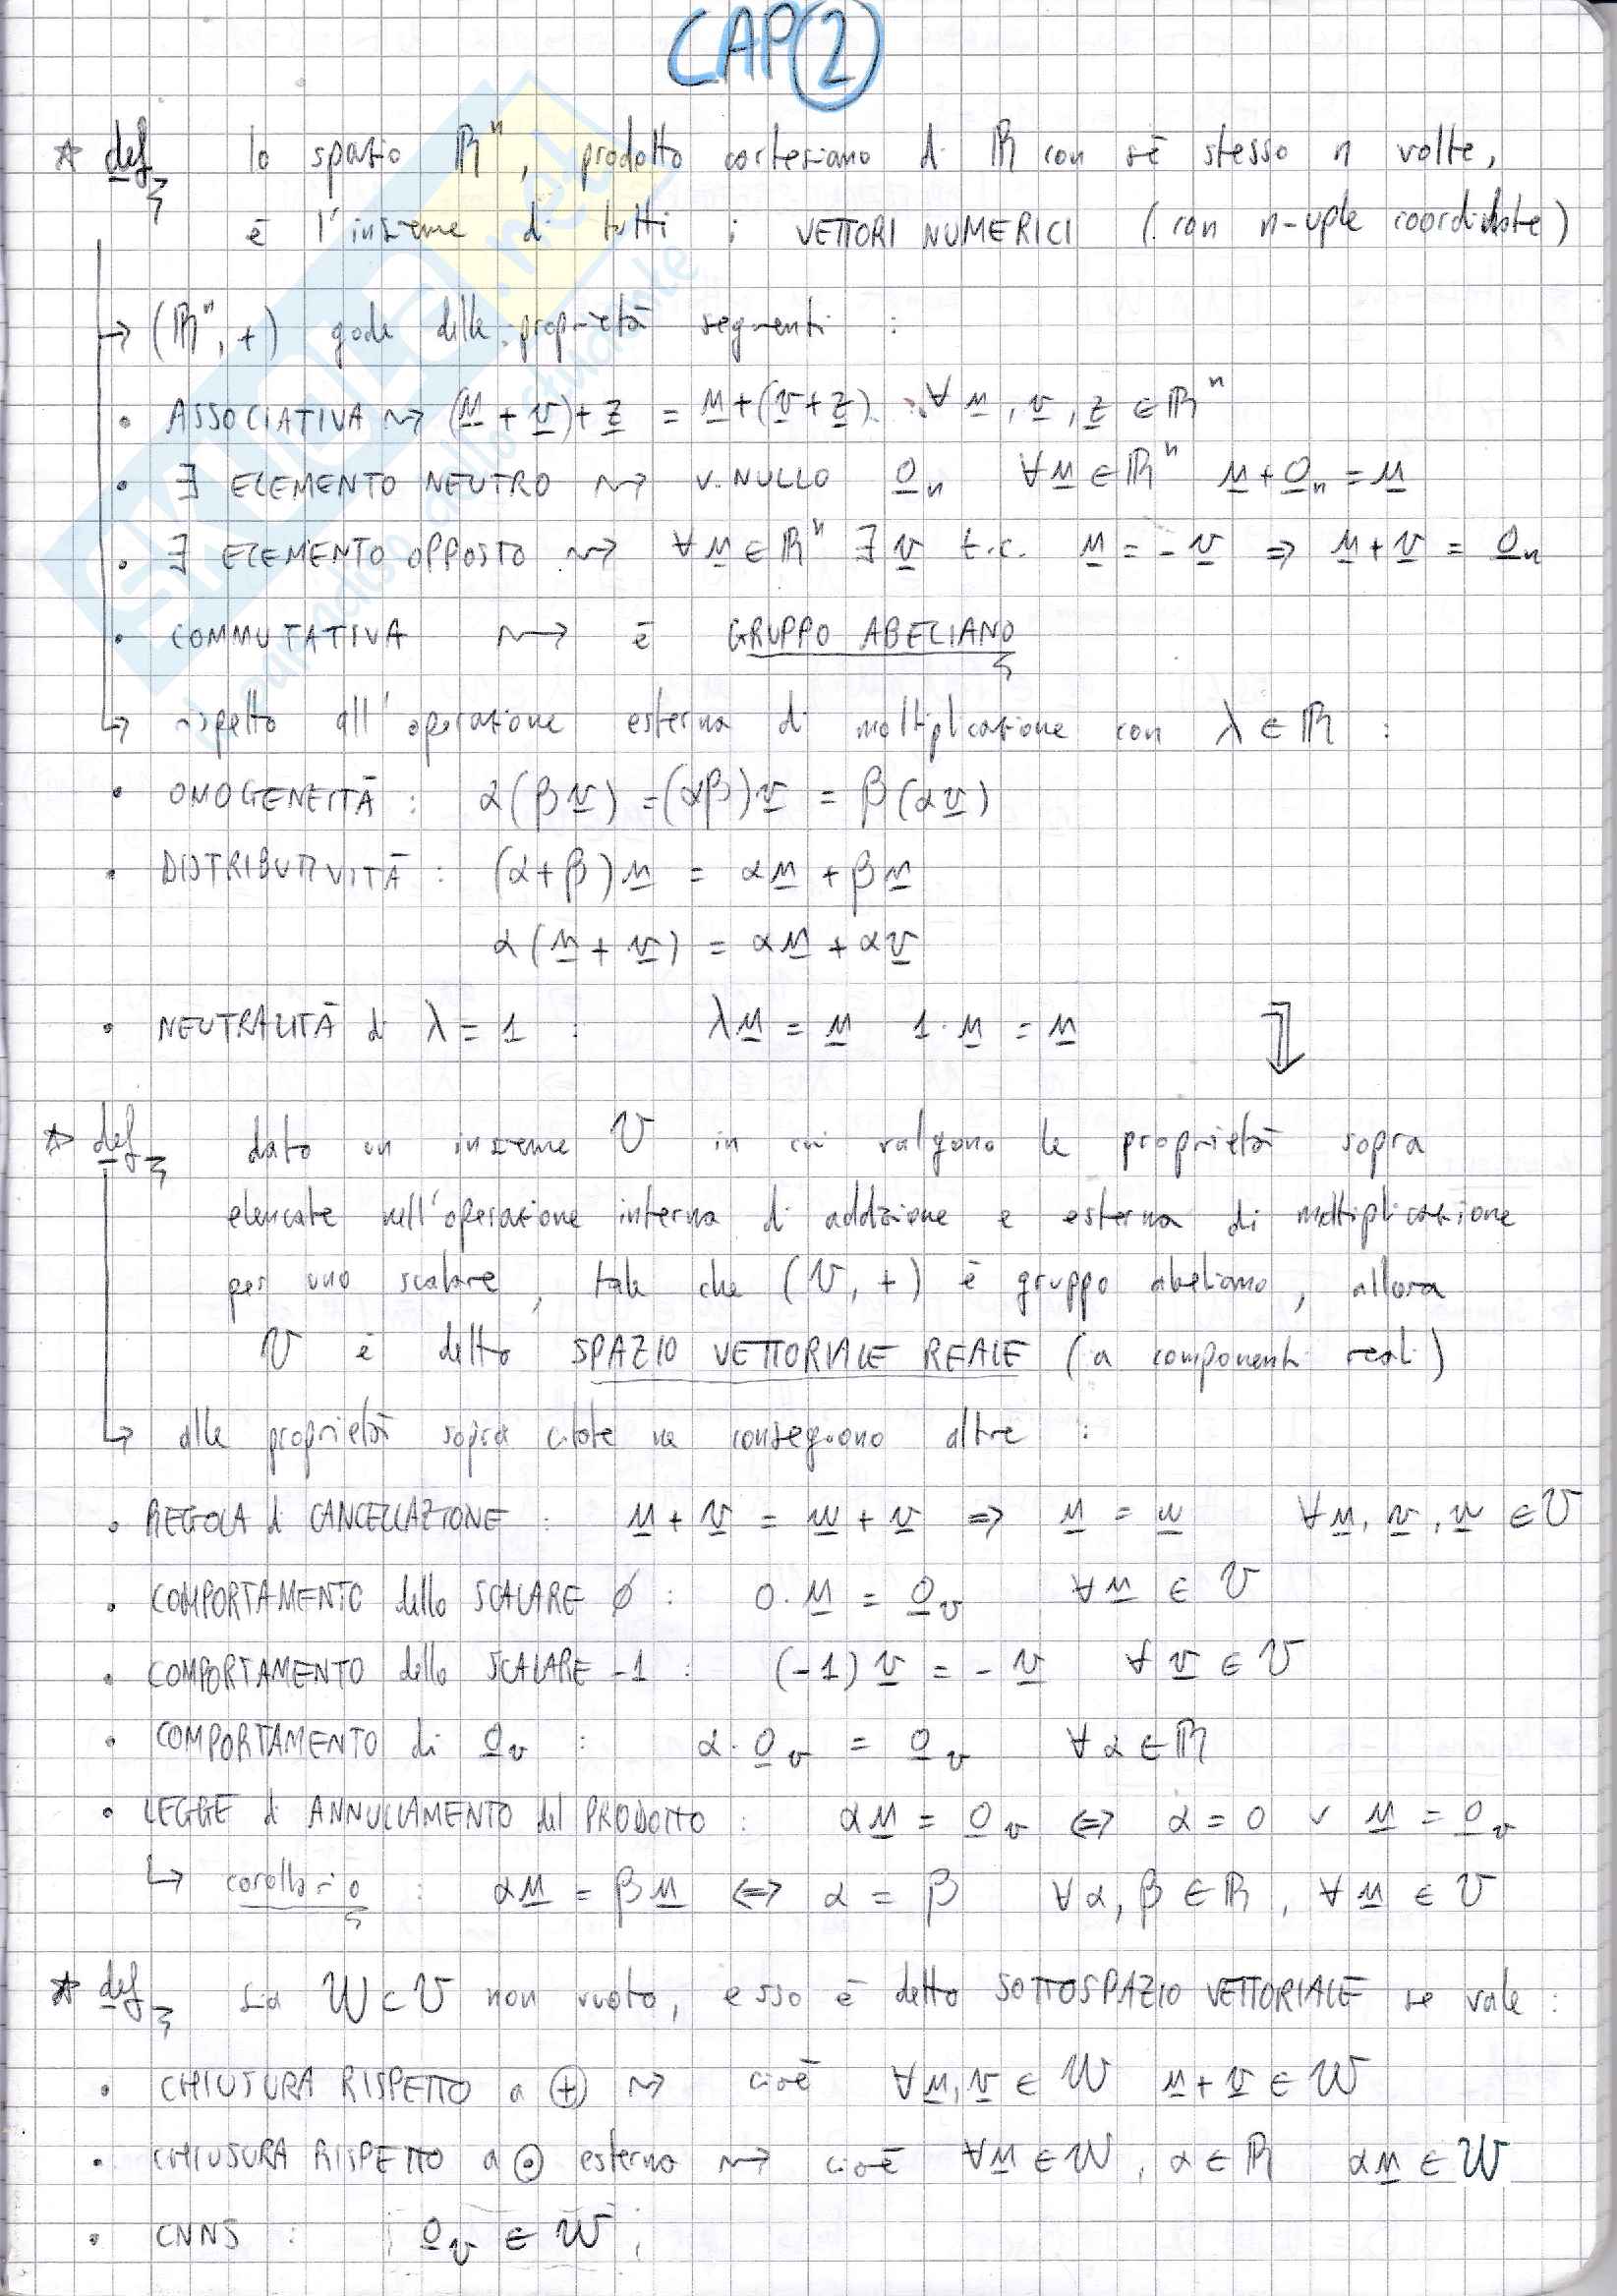 CAP 2
☆ def lo spazio ℝⁿ, prodotto cartesiano di ℝ con sé stesso n volte,
è l'insieme di tutti i VETTORI NUMERICI (con n-uple coordinate)
→ (ℝⁿ, +) gode delle proprietà seguenti :
• ASSOCIATIVA ⇝ (u + v) + z = u + (v + z) ∀ u, v, z ∈ ℝⁿ
• ∃ ELEMENTO NEUTRO ⇝ v. NULLO 0ₙ ∀ u ∈ ℝⁿ u + 0ₙ = u
• ∃ ELEMENTO OPPOSTO ⇝ ∀ u ∈ ℝⁿ ∃ v t.c. u = - v ⇒ u + v = 0ₙ
• COMMUTATIVA ⇝ è GRUPPO ABELIANO
↳ rispetto all'operazione esterna di moltiplicazione con λ ∈ ℝ :
• OMOGENEITÀ : α(βv) = (αβ)v = β(αv)
• DISTRIBUTIVITÀ : (α + β)u = αu + βu
α(u + v) = αu + αv
• NEUTRALITÀ di λ = 1 : λu = u 1 · u = u
☆ def dato un insieme V in cui valgono le proprietà sopra
elencate nell'operazione interna di addizione e esterna di moltiplicazione
per uno scalare, tale che (V, +) è gruppo abeliano, allora
V è detto SPAZIO VETTORIALE REALE (a componenti reali)
↳ alle proprietà sopra citate ne conseguono altre :
• REGOLA di CANCELLAZIONE : u + v = w + v ⇒ u = w ∀ u, v, w ∈ V
• COMPORTAMENTO dello SCALARE ∅ : 0 · u = 0ᵥ ∀ u ∈ V
• COMPORTAMENTO dello SCALARE -1 : (-1)v = - v ∀ v ∈ V
• COMPORTAMENTO di 0ᵥ : α · 0ᵥ = 0ᵥ ∀ α ∈ ℝ
• LEGGE di ANNULLAMENTO del PRODOTTO : αu = 0ᵥ ⇔ α = 0 ∨ u = 0ᵥ
↳ corollario : αu = βu ⇔ α = β ∀ α, β ∈ ℝ, ∀ u ∈ V
☆ def sia W ⊂ V non vuoto, esso è detto SOTTOSPAZIO VETTORIALE se vale :
• CHIUSURA RISPETTO a ⊕ ⇝ cioè ∀ u, v ∈ W u + v ∈ W
• CHIUSURA RISPETTO a ⊙ esterno ⇝ cioè ∀ u ∈ W, α ∈ ℝ αu ∈ W
• CNNS : 0ᵥ ∈ W